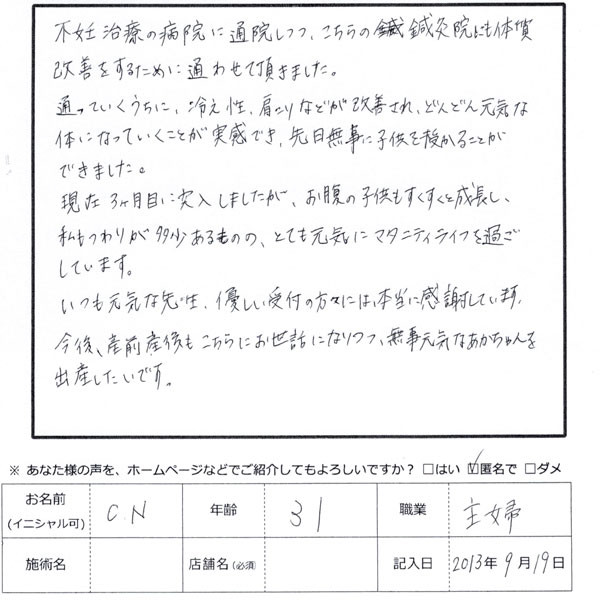 不妊治療の病院に通院しつつ、こちらの鍼灸院にも体質
改善をするために通わせて頂きました。
通っていくうちに、冷え性、肩こりなどが改善され、どんどん元気な
体になっていくことが実感でき、先日無事に子供を授かることが
できました。
現在3ヶ月目に突入しましたが、お腹の子供もすくすくと成長し、
私もつわりが多少あるものの、とても元気にマタニティライフを過ご
しています。
いつも元気な先生、優しい受付の方々には、本当に感謝しています。
今後、産前産後もこちらにお世話になりつつ、無事元気なあかちゃんを
出産したいです。
※ あなた様の声を、ホームページなどでご紹介してもよろしいですか? □はい ☑匿名で □ダメ
お名前 (イニシャル可) C N 年齢 31 職業 主婦
施術名 店舗名(必須) 記入日 2013年9月19日